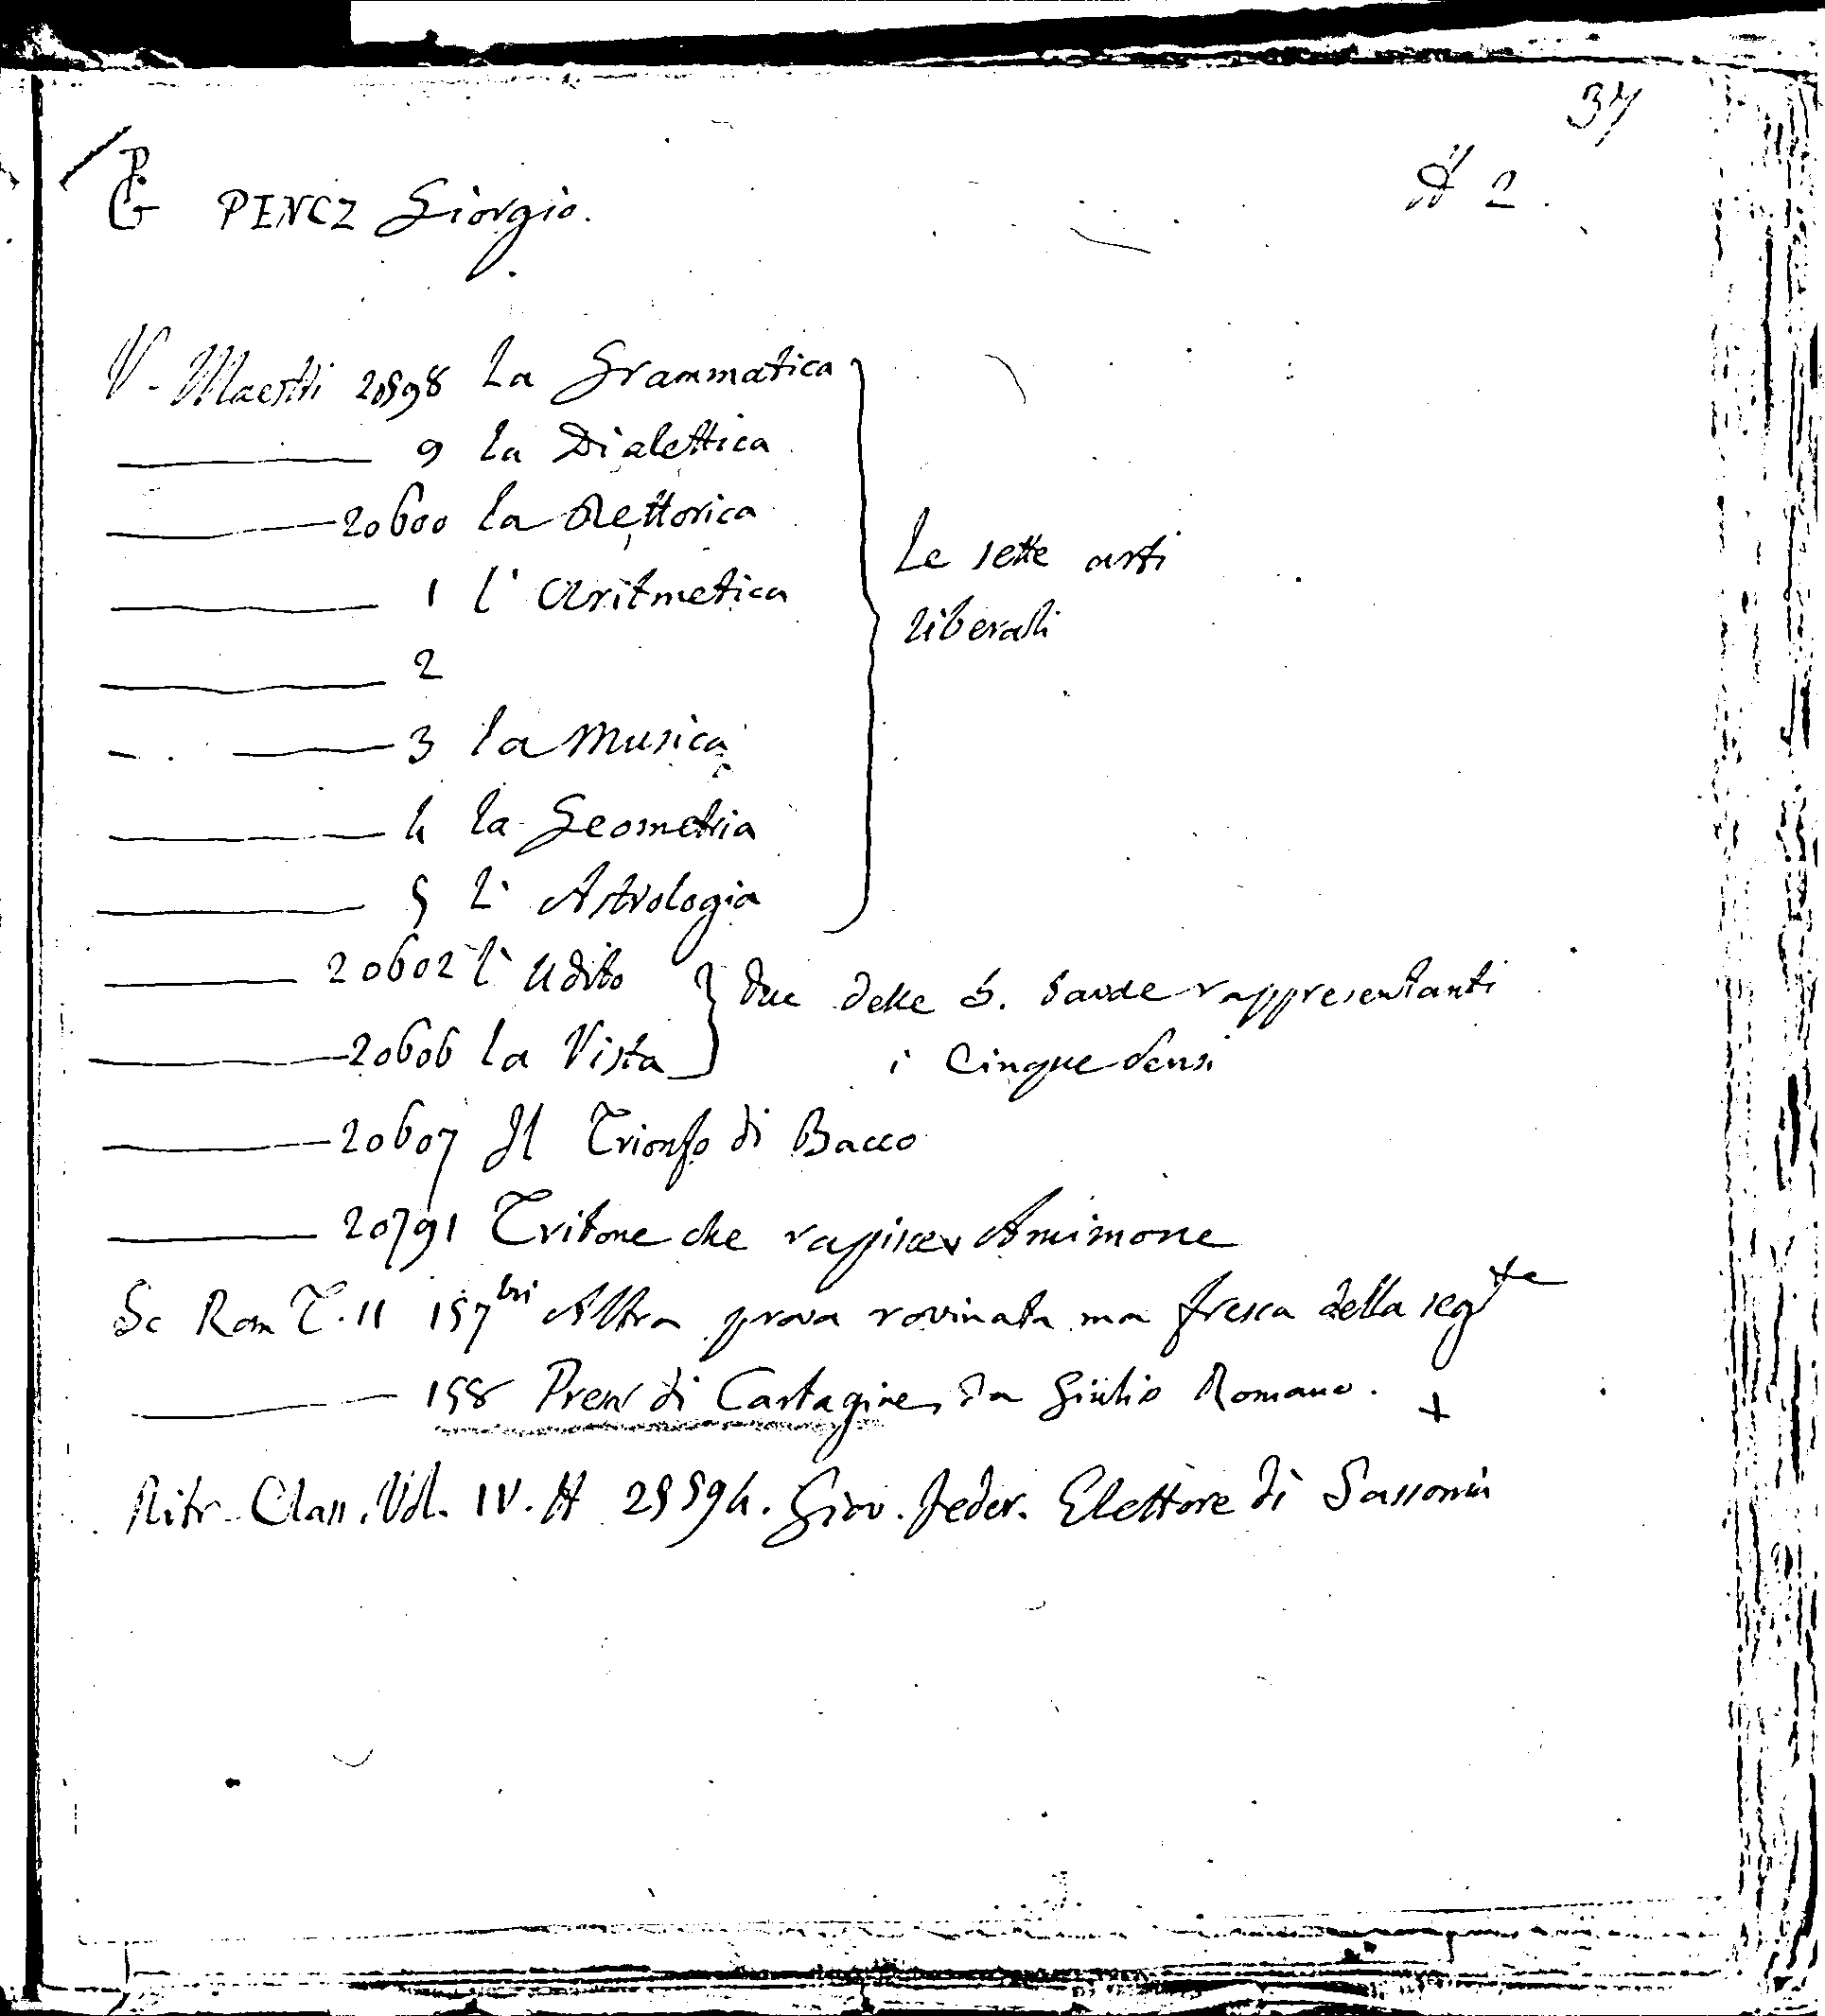 37
PG PENCZ Giorgio. A 2.
V. Maestri 20598 La Grammatica
9 la Dialettica
20600 la Rettorica
Le sette arti
1 l'Aritmetica
liberali
2
3 la Musica
4 la Geometria
5 l'Astrologia
20602 l'Udito } due delle 5. tavole rappresentanti
20606 la Vista i cinque sensi
20607 Il Trionfo di Bacco
20791 Tritone che rapisce Amimone
Sc Rom T. 11 157 bis Altra prova rovinata ma fresca della segte
158 Presa di Cartagine, da Giulio Romano. +
Ritr. Class. Vol. IV. A 25594. Giov. Feder. Elettore di Sassonia